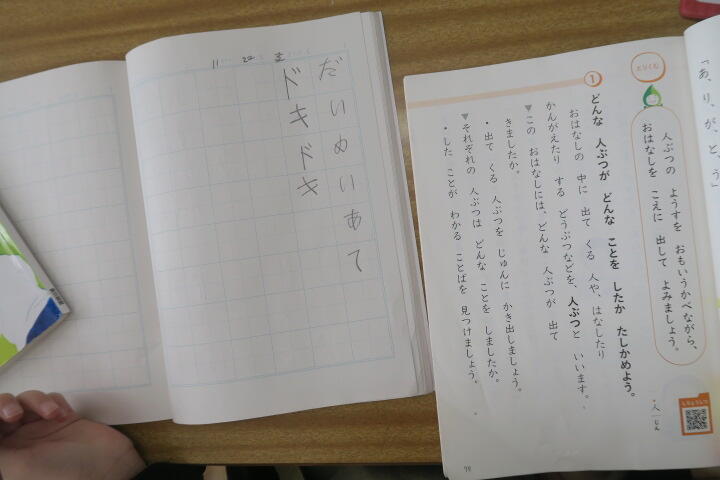 「あ、り、が、と、う」
とりくむ
人ぶつの ようすを おもいうかべながら、
おはなしを こえに 出して よみましょう。
1
どんな 人ぶつが どんな ことを したか たしかめよう。
おはなしの 中に 出て くる 人や、はなしたり
かんがえたり する どうぶつなどを、人ぶつと いいます。
▼この おはなしには、どんな 人ぶつが 出て
きましたか。
・出て くる 人ぶつを じゅんに かき出しましょう。
▼それぞれの 人ぶつは どんな ことを しましたか。
・した ことが わかる ことばを 見つけましょう。
・人 じん
78
11 22
だいめいあて
ドキドキ